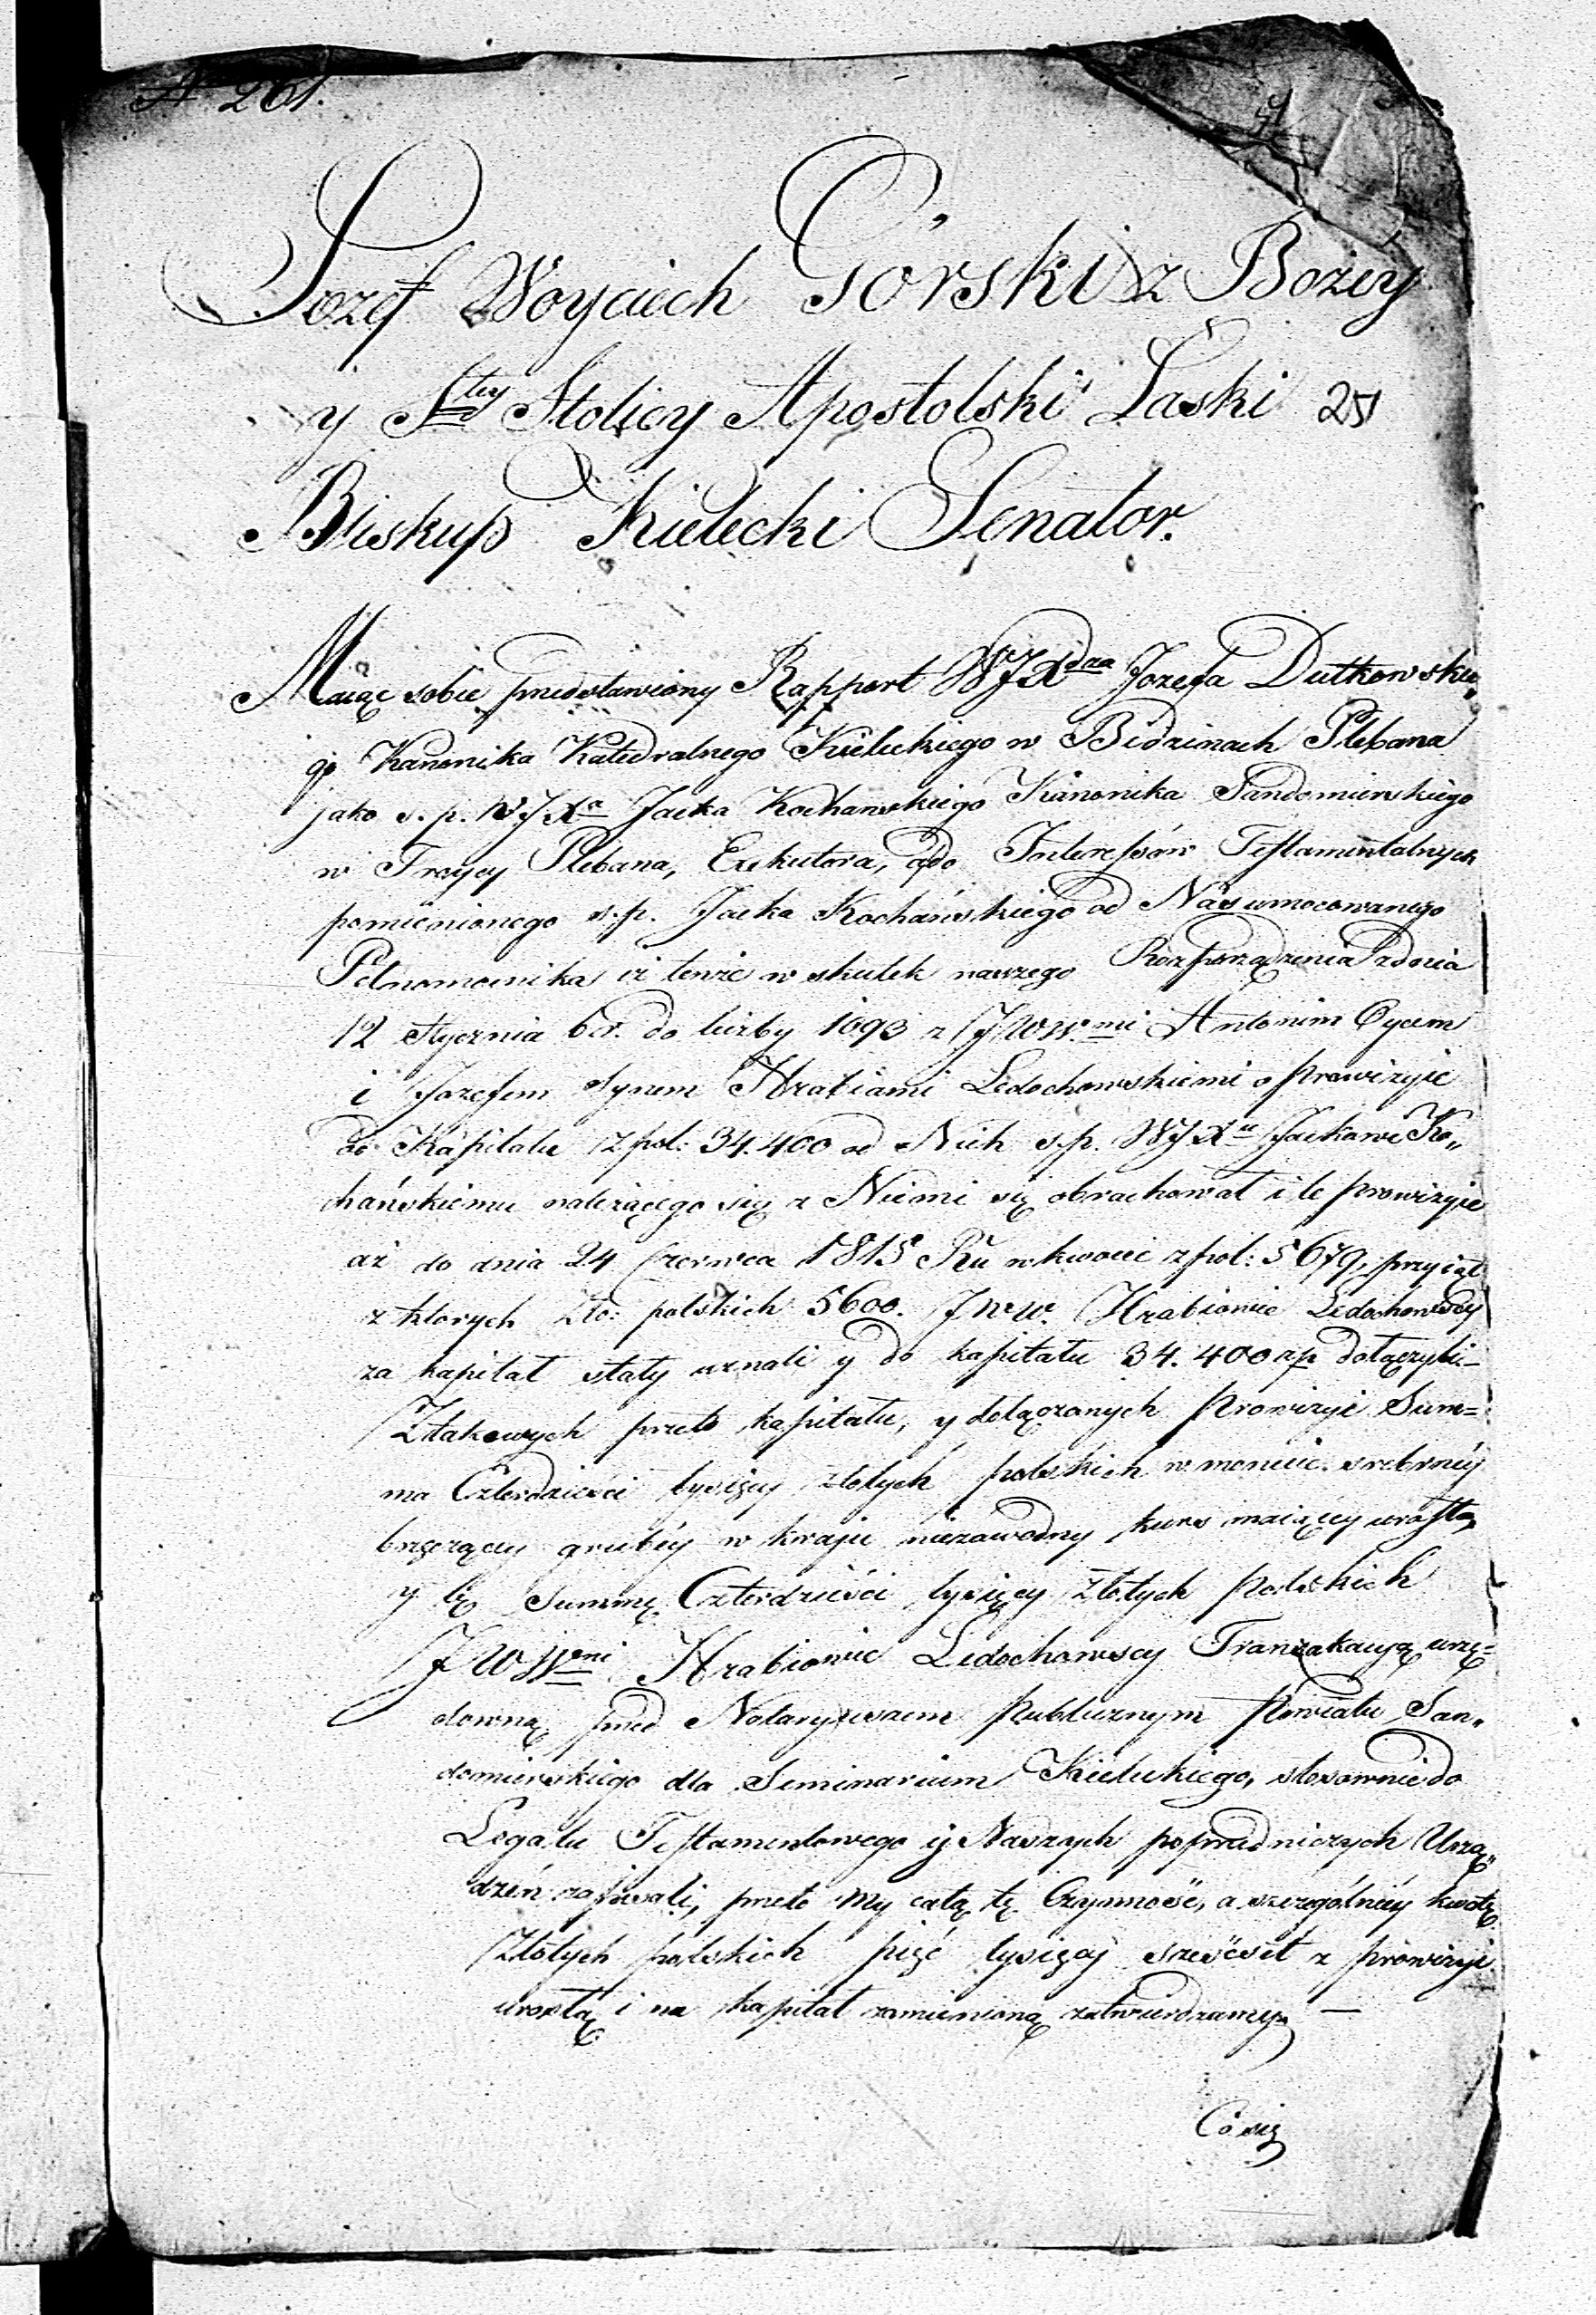 N 261.
Jozef Woyciech Górski z Bożey
y Stey Stolicy Apostolski Łaski 251
Biskup Kielecki Senator.
Maiąc sobie przedstawiony Rapport WJXdza Jozefa Dutkowskie„
go Kanonika Katedralnego Kieleckiego w Bidzinach Plebana
jako s. p. WJXa Jacka Kochanskiego Kanonika Sandomirskiego
w Troycy Plebana, Exekutora, ado Interessów Testamentalnych
pomienionego s. p. Jacka Kochańskiego od Nas umocowanego
Pełnomocnika iż tenże w skutek naszego Rozporządzenia zdnia
12 Stycznia b.r. do liczby 1693 z JWW.mi Antonim Oycem
i Jozefem Synem Hrabiami Ledochowskiemi o prowizyie
do Kapitału zpol: 34.400 od Nich s.p. WJXu Jackowi Ko„
chańskiemu należącego się z Niemi się obrachował i te prowizyie
aż do dnia 24 Czerwca 1815 Ru w kwocie zpol: 5679, przyiął
z ktorych Zło: polskich 5600. JWW. Hrabiowie Ledochowscy
za kapitał stały uznali y do kapitału 34.400 zp dołączyli–
Ztakowych przeto kapitału, y dołączonych Prowizyi Sum=
ma Czterdzieści tysięcy złotych polskich w monecie srebrnéy
brzęzący grubéy w kraju niezawodny kurs maiący urosła,
y tę Summę Czterdzieści tysięcy złotych Polskich
JWWni Hrabiowie Ledochowscy Tranzakcyą urzę=
downą przed Notaryuszem Publicznym Powiatu San„
domierskiego dla Seminarium Kieleckiego, stosownie do
Legatu Testamentowego y Naszych poprzedniczych Urzą„
dzeń zapisali, przeto My całą tę Czynność, a szczególniéy kwotę
Złotych polskich pięć tysięcy sześćset z prowizyi
urosłą i na kapitał zamienioną zatwierdzamy. —
Co się